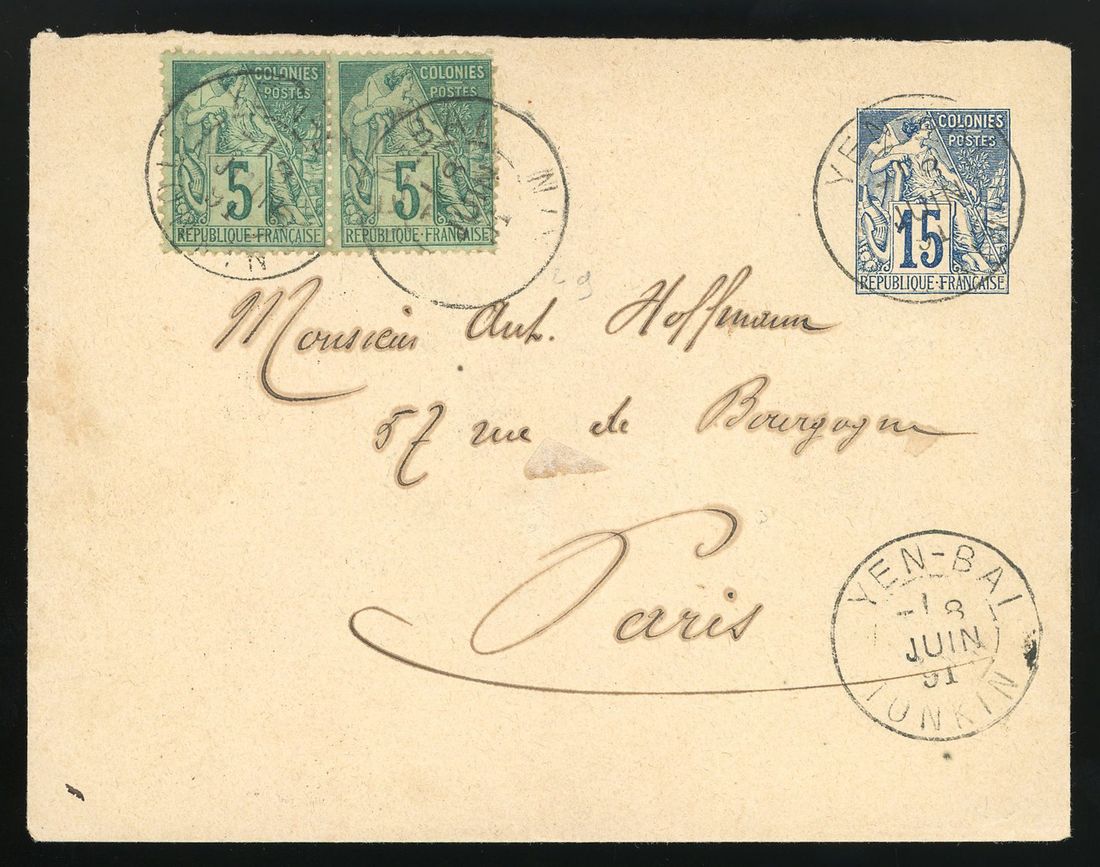 COLONIES
POSTES
5
REPUBLIQUE FRANÇAISE
COLONIES
POSTES
5
REPUBLIQUE FRANÇAISE
COLONIES
POSTES
15
REPUBLIQUE FRANÇAISE
YEN
49
Monsieur Ant. Hoffmann
57 rue de Bourgogne
Paris
YEN-BAI
18
JUIN
91
TONKIN